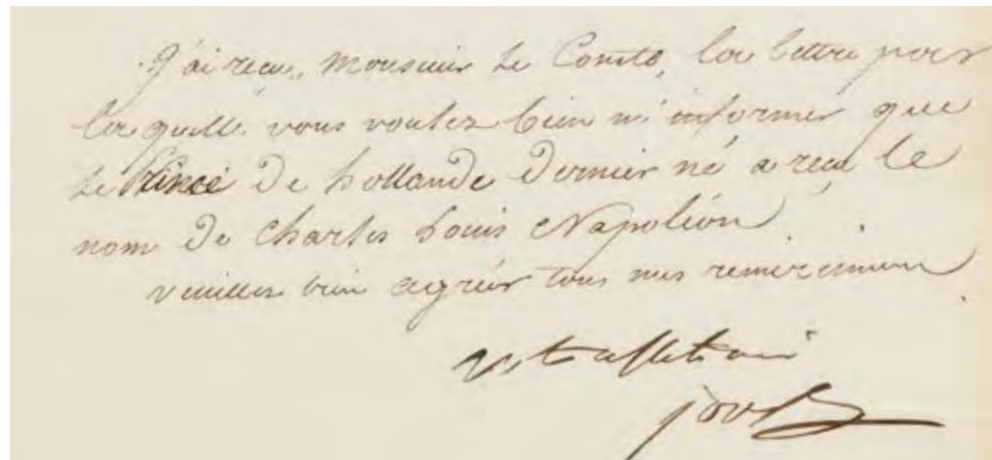 J'ai reçu, Monsieur Le Comte, la lettre par
la quelle vous voulez bien m'informer que
Le Prince De hollande Dernier né a reçu le
nom De Charles Louis Napoléon.
veuillez bien agréer tous mes remerciemens